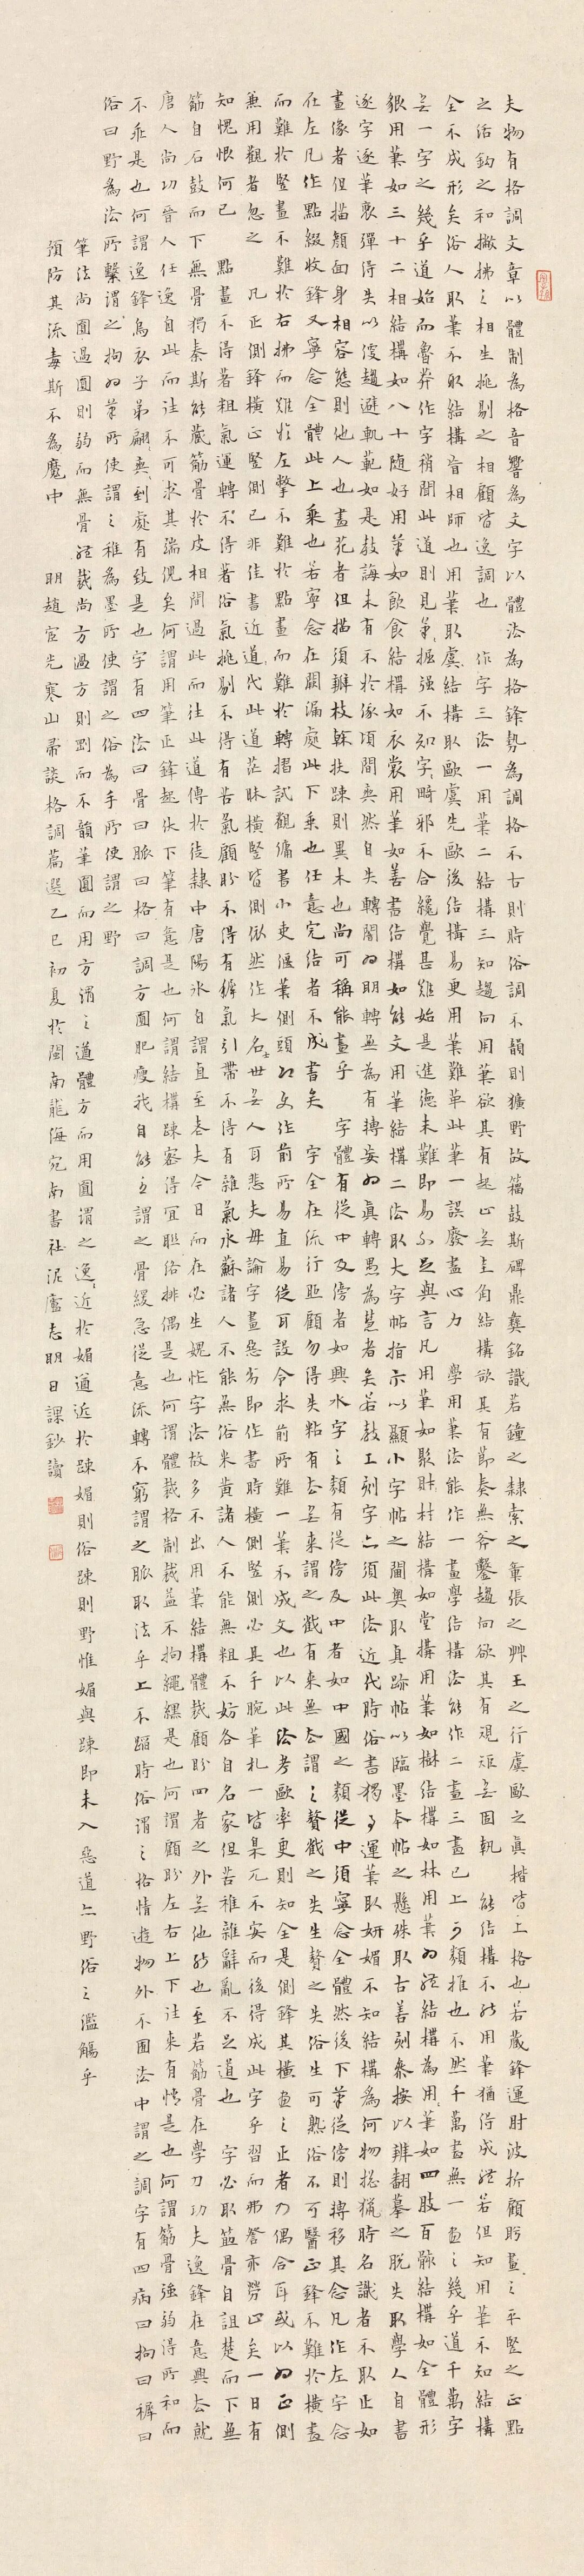 夫物有格調文章以體制為格音響為文字以體法為格鋒勢為調格不古則時俗調不韻則獷野故籀鼓斯碑鼎彝銘識若鐘之隸索之章張之艸王之行虞歐之真楷皆上格也若藏鋒運肘波折顧盻畫之平竪之正點
之活鈎之和撇拂之相生挑剔之相顧皆逸調也　作字三法一用筆二結構三知趨向用筆欲其有起止無圭角結構欲其有節奏無斧鑿趨向欲其有規矩無固執　能結構不能用筆猶得成體若但知用筆不知結構
全不成形矣俗人取筆不取結構盲相師也用筆取虞結構取歐虞先歐後結構易更用筆難革此筆一誤廢盡心力　學用筆法能作一畫學結構法能作二畫三畫已上可類推也不然千萬畫無一畫之幾乎道千萬字
無一字之幾乎道始而魯莽作字稍聞此道則見筆掘强不知字畸邪不合繩覺甚難始是進德未難即易不足與言凡用筆如聚財材結構如堂構用筆如樹結構如林用筆為體結構為用筆如四肢百骸結構如全體形
貌用筆如三十二相結構如八十隨好用筆如飲食結構如衣裳用筆如善書結構如能文用筆結構二法取大字帖指示以顯小字帖之閫奥取真跡帖以臨墨本帖之懸殊取古善刻參按以辨翻摹之脫失取學人自書
逐字逐筆衷彈得失以復趨避軌範如是教誨未有不於俄頃間爽然自失轉闇為明轉無為有轉妄為真轉愚為慧者矣若教工刻字亦須此法近代時俗書獨事運筆取妍媚不知結構為何物總獵時名識者不取正如
畫像者但描顏面身相容態則他人也畫花者但描須瓣枝榦扶踈則異木也尚可稱能畫乎　字體有從中及傍者如興水字之類有從傍及中者如中國之類從中須寧念全體然後下筆從傍則轉移其念凡作左字念
在左凡作點綴收鋒又寧念全體此上乘也若寧念在闕漏處此下乘也任意完結者不成書矣　字全在流行照顧勿得失粘有去無來謂之截有來無去謂之贅截之失生贅之失俗生可熟俗不可醫正鋒不難於橫畫
而難於竪畫不難於右拂而難於左撆不難於點畫而難於轉摺試觀傭書小吏偃筆側頭欹身作前所易直易從耳設令求前所難一筆不成文也以此法考歐率更則知全是側鋒其橫畫之正者力偶合耳或以為正側
兼用觀者忽之　凡正側鋒橫正竪側已非佳書近道代此道茫昧橫竪皆側俶然作大名世無人耳悲夫毋論字畫惡劣即作書時橫側竪側必具手腕筆札一皆臬兀不安而後得成此字乎習而弗詧亦勞止矣一日有
知愧恨何已　點畫不得著粗氣運轉不得著俗氣挑剔不得有苦氣顧盻不得有鏬氣引帶不得有雜氣永蘇諸人不能無俗米黄諸人不能無粗不妨各自名家但苦稚雜辭亂不足道也　字必取筋骨自詛楚而下無
筋自石鼓而下無骨獨秦斯能藏筋骨於皮相間過此而往此道傳於徒隸中唐陽冰自謂直至志夫今日而在必生媿怍字法故多不出用筆結構體裁顧盻四者之外無他能也至若筋骨在學刀功夫逸鋒在意興去就
唐人尚功晉人任逸自此而往不可求其端倪矣何謂用筆正鋒起伏下筆有意是也何謂結構踈密得宜聯絡排偶是也何謂體裁格制裁益不拘繩縲是也何謂顧盻左右上下往來有情是也何謂筋骨強弱得所和而
不乖是也何謂逸鋒烏衣子弟翩爽到處有致是也字有四法曰骨曰脈曰格曰調方圓肥瘦我自能立謂之骨緩急從意流轉不窮謂之脈取法乎上不蹈時俗謂之格情遊物外不囿法中謂之調字有四病曰拘曰穉曰
俗曰野為法所繫謂之拘為筆所使謂之稚為墨所使謂之俗為手所使謂之野
筆法尚圓過圓則弱而無骨體裁尚方過方則剛而不韻筆圓而用方謂之遒體方而用圓謂之逸逸近於媚遒近於踈媚則俗踈則野惟媚與踈即未入惡道亦野俗之濫觴乎
預防其流毒斯不為魔中　明趙宧光寒山帚談格調篇選乙巳初夏於閩南龍海宛南書社泥廬志明日課鈔讀